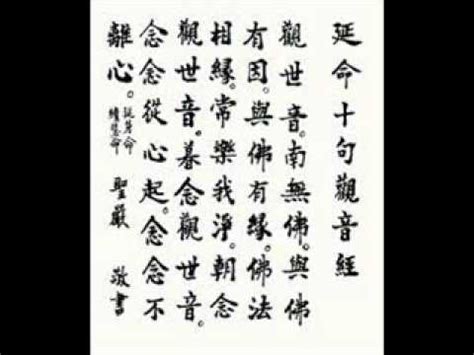 延命十句觀音經
觀世音。南無佛。與佛
有因。與佛有緣。佛法
相緣。常樂我淨。朝念
觀世音。暮念觀世音。
念念從心起。念念不
離心。
續慧命
聖嚴 敬書